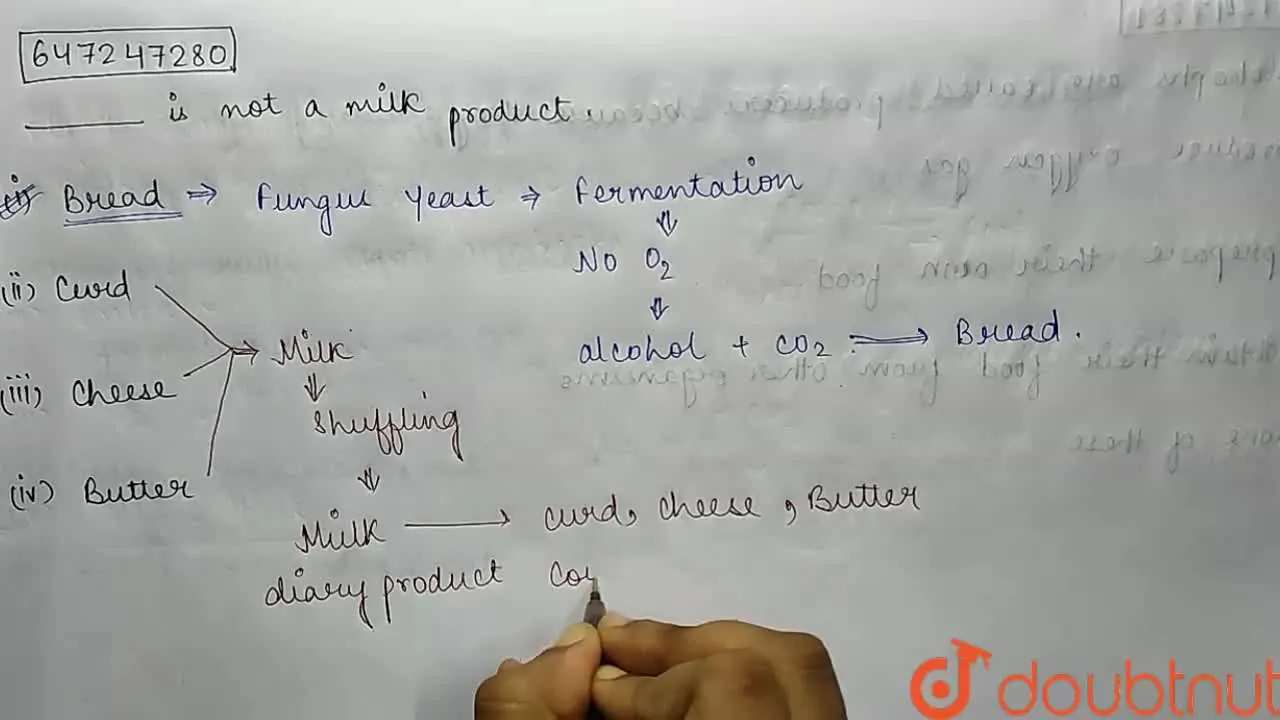 647247280
______ is not a milk product
(i) Bread ⇒ Fungus yeast ⇒ Fermentation
⇓
NO O₂
⇓
alcohol + CO₂ ⟹ Bread.
(ii) Curd
(iii) Cheese
(iv) Butter
⇒ Milk
⇓
Shuffling
⇓
Milk → curd, cheese, Butter
diary product Cou
doubtnut